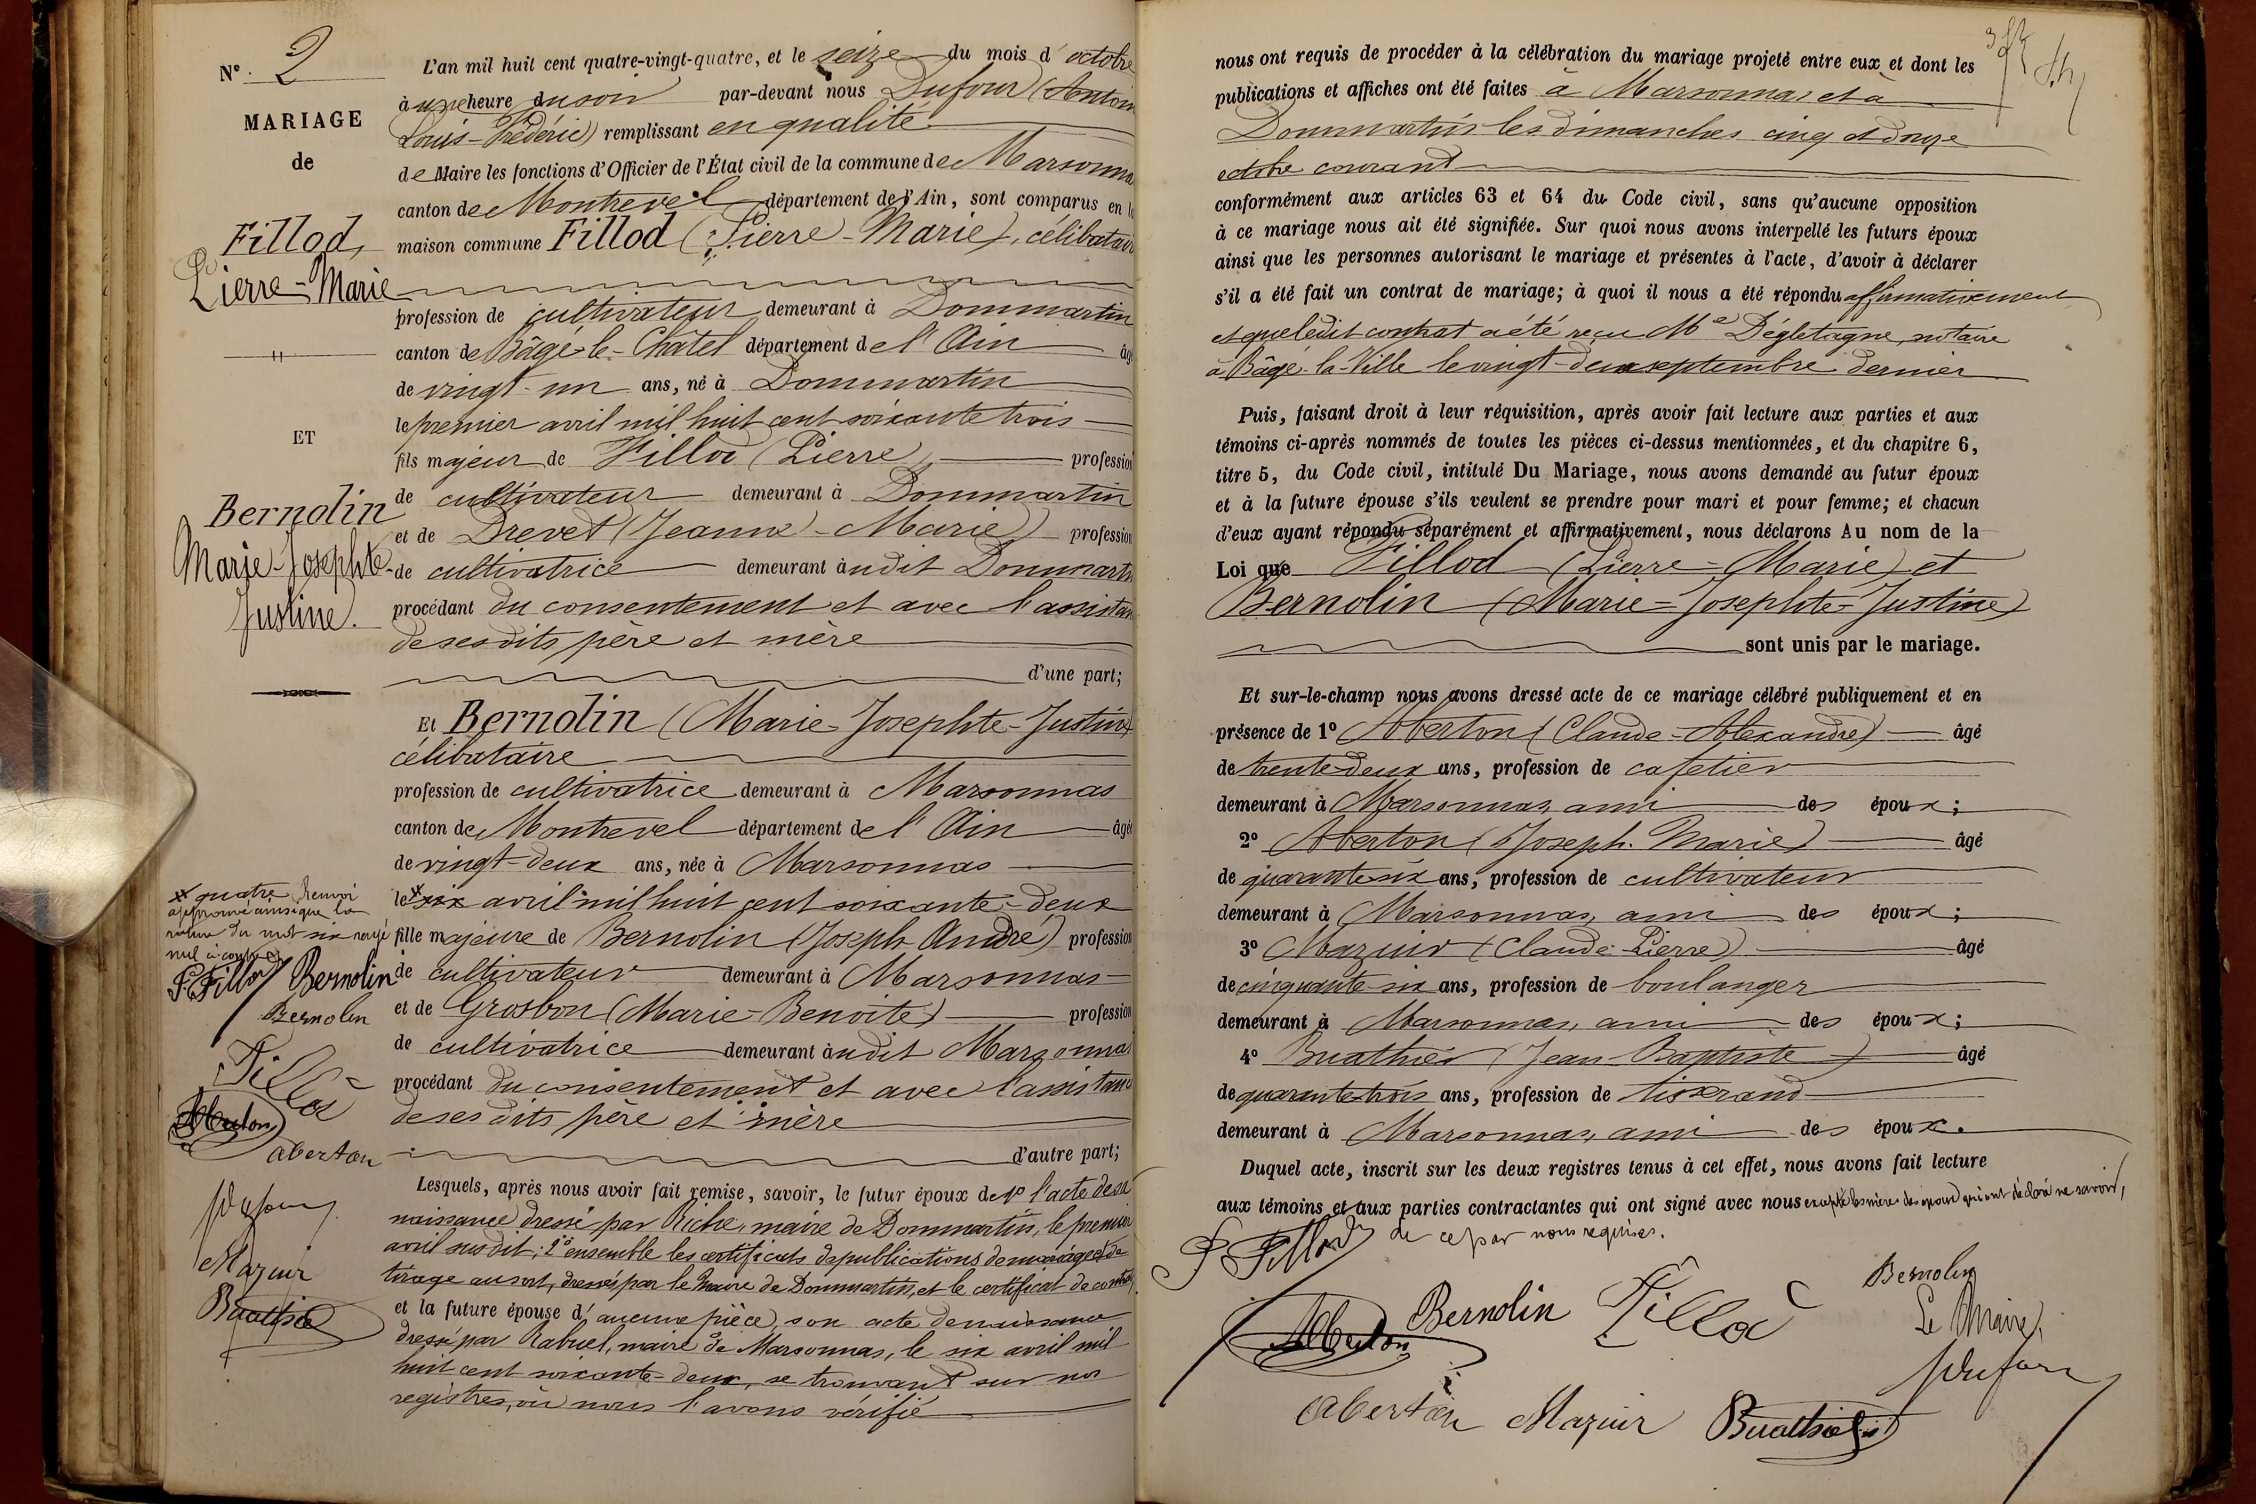 N° 2
MARIAGE
de
Fillod,
Pierre-Marie
ET
Bernolin
Marie-Josephte-
Justine.
x quatre Renvoi
approuvé ainsi que la
rature du mot six rayé
nul
P. Fillod Bernolin
Bernolin
Fillod
Aberton
aberton
Dufour
Mazuir
Buathier
L'an mil huit cent quatre-vingt-quatre, et le seize du mois d'octobre
à une heure du soir par-devant nous Dufour (Antoin
Louis-Frédéric) remplissant en qualité
de Maire les fonctions d'Officier de l'État civil de la commune de Marsonna
canton de Montrevel département de l'Ain, sont comparus en la
maison commune Fillod (Pierre-Marie), célibataire
profession de cultivateur demeurant à Dommartin
canton de Bâgé-le-Châtel département de l'Ain âgé
de vingt-un ans, né à Dommartin
le premier avril mil huit cent soixante trois
fils majeur de Fillod (Pierre) profession
de cultivateur demeurant à Dommartin
et de Drevet (Jeanne-Marie) profession
de cultivatrice demeurant à udit Dommartin
procédant du consentement et avec l'assistan
de ses dits père et mère
d'une part;
Et Bernolin (Marie-Josephte-Justine)
célibataire
profession de cultivatrice demeurant à Marsonnas
canton de Montrevel département de l'Ain âgée
de vingt-deux ans, née à Marsonnas
le x six avril mil huit cent soixante-deux
fille majeure de Bernolin (Joseph André) profession
de cultivateur demeurant à Marsonnas
et de Grosbon (Marie-Benoite) profession
de cultivatrice demeurant à udit Marsonnas
procédant du consentement et avec l'assistan
de ses dits père et mère
d'autre part;
Lesquels, après nous avoir fait remise, savoir, le futur époux de 1° l'acte de sa
naissance dressé par Riche, maire de Dommartin, le premier
avril susdit; 2° ensemble les certificats de publications de mariage et de
tirage au sort, dressés par le Maire de Dommartin, et le certificat de contrat,
et la future épouse d'aucune pièce, son acte de naissance
dressé par Rabuel, maire de Marsonnas, le six avril mil
huit cent soixante-deux, se trouvant sur nos
registres, où nous l'avons vérifié
nous ont requis de procéder à la célébration du mariage projeté entre eux et dont les
publications et affiches ont été faites à Marsonnas et à
Dommartin les dimanches cinq et douze
octobre courant
conformément aux articles 63 et 64 du Code civil, sans qu'aucune opposition
à ce mariage nous ait été signifiée. Sur quoi nous avons interpellé les futurs époux
ainsi que les personnes autorisant le mariage et présentes à l'acte, d'avoir à déclarer
s'il a été fait un contrat de mariage; à quoi il nous a été répondu affirmativement
et que ledit contrat a été reçu Me Dégletagne, notaire
à Bâgé-la-Ville le vingt-deux septembre dernier
Puis, faisant droit à leur réquisition, après avoir fait lecture aux parties et aux
témoins ci-après nommés de toutes les pièces ci-dessus mentionnées, et du chapitre 6,
titre 5, du Code civil, intitulé Du Mariage, nous avons demandé au futur époux
et à la future épouse s'ils veulent se prendre pour mari et pour femme; et chacun
d'eux ayant répondu séparément et affirmativement, nous déclarons Au nom de la
Loi que Fillod (Pierre-Marie) et
Bernolin (Marie-Josephte-Justine)
sont unis par le mariage.
Et sur-le-champ nous avons dressé acte de ce mariage célébré publiquement et en
présence de 1° Aberton (Claude-Alexandre) âgé
de trente-deux ans, profession de cafetier
demeurant à Marsonnas, ami des époux;
2° Aberton (Joseph-Marie) âgé
de quarante-six ans, profession de cultivateur
demeurant à Marsonnas, ami des époux;
3° Mazuir (Claude-Pierre) âgé
de cinquante-six ans, profession de boulanger
demeurant à Marsonnas, ami des époux;
4° Buathier (Jean-Baptiste) âgé
de quarante-trois ans, profession de tisserand
demeurant à Marsonnas, ami des époux.
Duquel acte, inscrit sur les deux registres tenus à cet effet, nous avons fait lecture
aux témoins et aux parties contractantes qui ont signé avec nous excepté les mères des époux qui ont déclaré ne savoir,
de ce par nous requises.
P. Fillod
Bernolin
Aberton Bernolin Fillod
Le Maire,
Dufour
aberton Mazuir Buathier